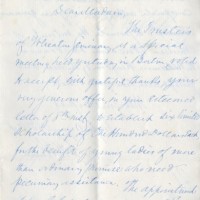 Dear Madam,
The Trustees
of Wheaton Seminary, at a special
meeting held yesterday in Boston, voted
to accept, with grateful thanks, your
very generous offer in your esteemed
letter of 1st inst, to establish
Scholarship of One Hundred dollars
for the benefit of young ladies of more
than ordinary promise who need
pecuniary assistance. The